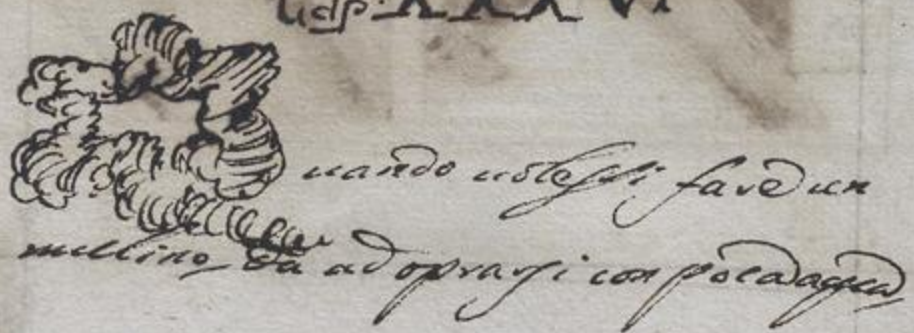 Cap: XXXVI
Quando uolessi fare un
mulino da adoprarsi con poca acqua